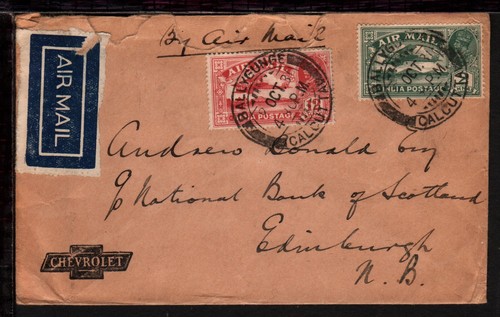 By Air Mail
AIR MAIL
BALLYGUNGE
OCT
4 P.M
CALCUTTA
AIR MAIL
INDIA POSTAGE
BALLYGUNGE
OCT
4 P.M
CALCUTTA
AIR MAIL
INDIA POSTAGE
Andrew Donald Esq
c/o National Bank of Scotland
Edinburgh
N. B.
CHEVROLET